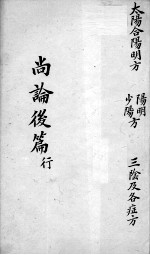 太陽合陽明方
陽明
少陽方
三陰及各症方
尚論後篇 行